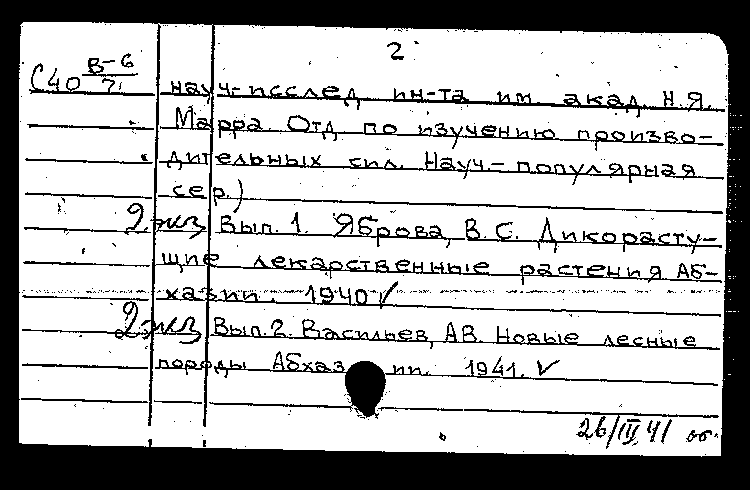 2
С40 В-6/7 науч-исслед. ин-та им. акад. Н.Я.
Марра. Отд по изучению произво-
дительных сил. Науч.-популярная
сер.)
2 экз Вып. 1. Яброва, В.С. Дикорасту-
щие лекарственные растения Аб-
хазии. 1940 ✓
2 экз Вып. 2. Васильев, АВ. Новые лесные
породы Абхазии. 1941. ✓
26/III 41